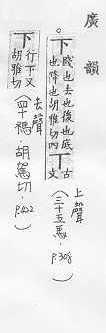 廣韻
下賤也去也後也底也降也胡雅切四下古文
上聲(三十五馬,p.308)
下行下又胡雅切
去聲(四十禡·胡駕切,p.422)